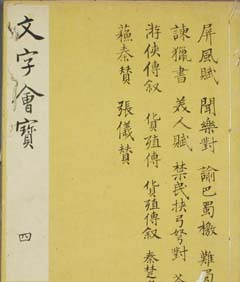 屏風賦 聞樂對 諭巴蜀檄 難蜀
諫獵書 美人賦 禁民挾弓弩對
游俠傳叙 貨殖傳 貨殖傳叙 秦楚
蘓秦贊 張儀贊
文字會寳
四